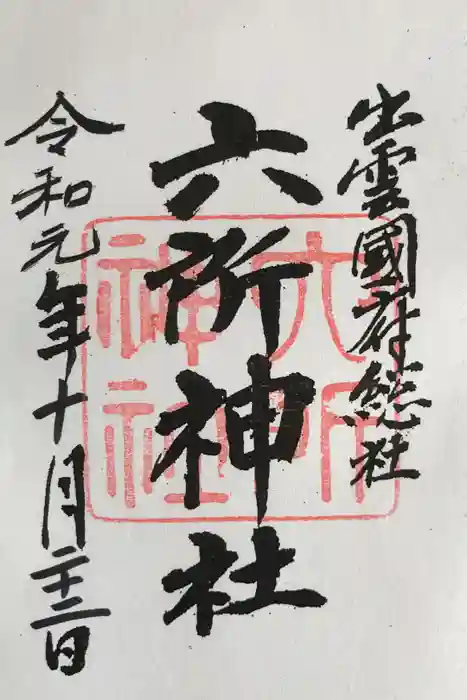 出雲國府總社
六所神社
令和元年十月二十二日
六所
神社